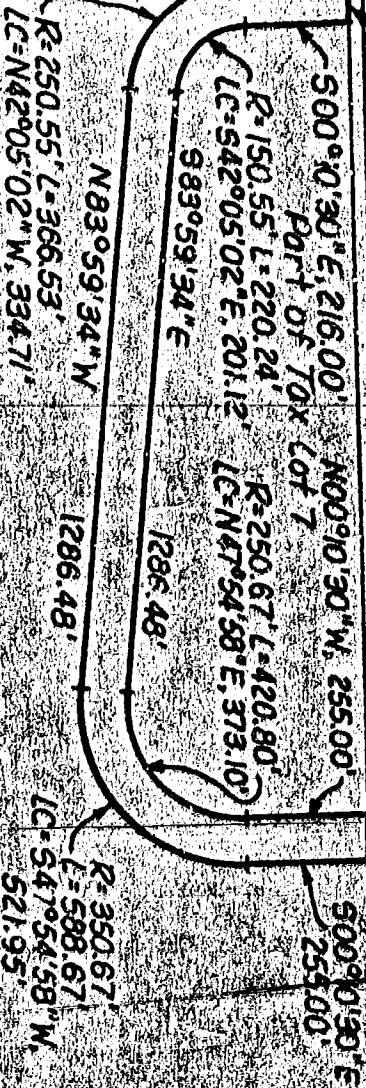 S00°10'30"E, 216.00'
Part of Tax Lot 7
R=150.55' L=220.24'
LC=S42°05'02"E, 201.12'
S83°59'34"E
1286.48'
N83°59'34"W
1286.48'
R=250.55' L=366.53'
LC=N42°05'02"W, 334.71'
N00°10'30"W, 255.00'
R=250.67' L=420.80'
LC=N47°54'58"E, 373.10'
S00°10'30"E
255.00'
R=350.67'
L=588.67
LC=S47°54'58"W,
521.95'